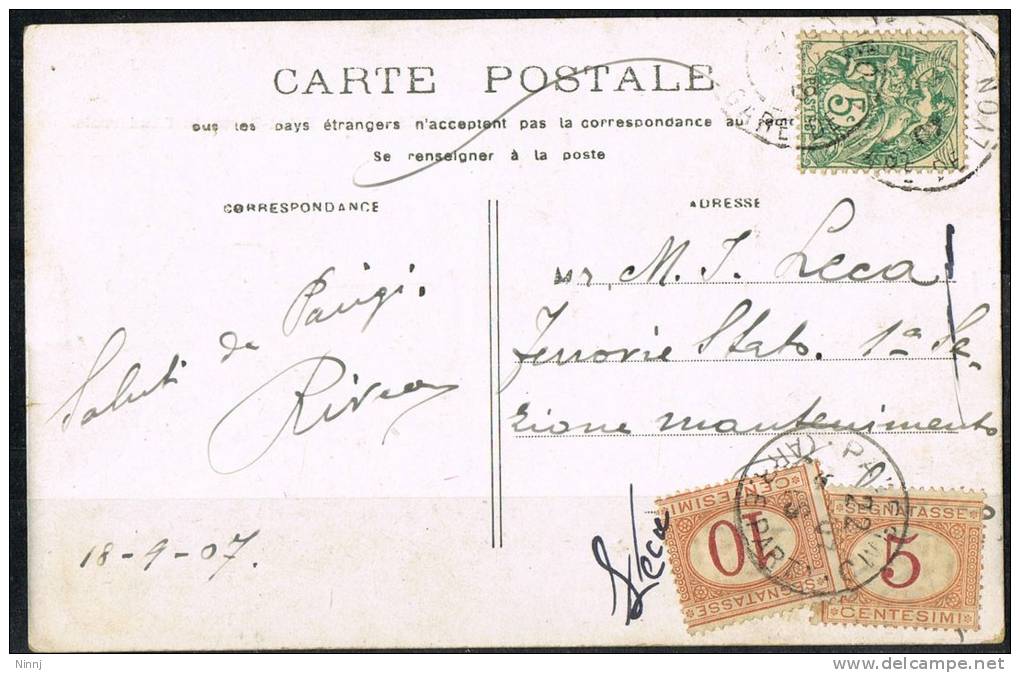 CARTE POSTALE
ous les pays étrangers n'acceptent pas la correspondance au
Se renseigner à la poste
CORRESPONDANCE
ADRESSE
5c
POSTES
GARE
Mr, M. J. Lecca
Ferrovie Stato. 1ª Se-
zione mantenimento
Saluti da Parigi.
18-9-07.
Lecca
SEGNATASSE
10
CENTESIMI
SEGNATASSE
5
CENTESIMI
Ninnj
delcampe.net